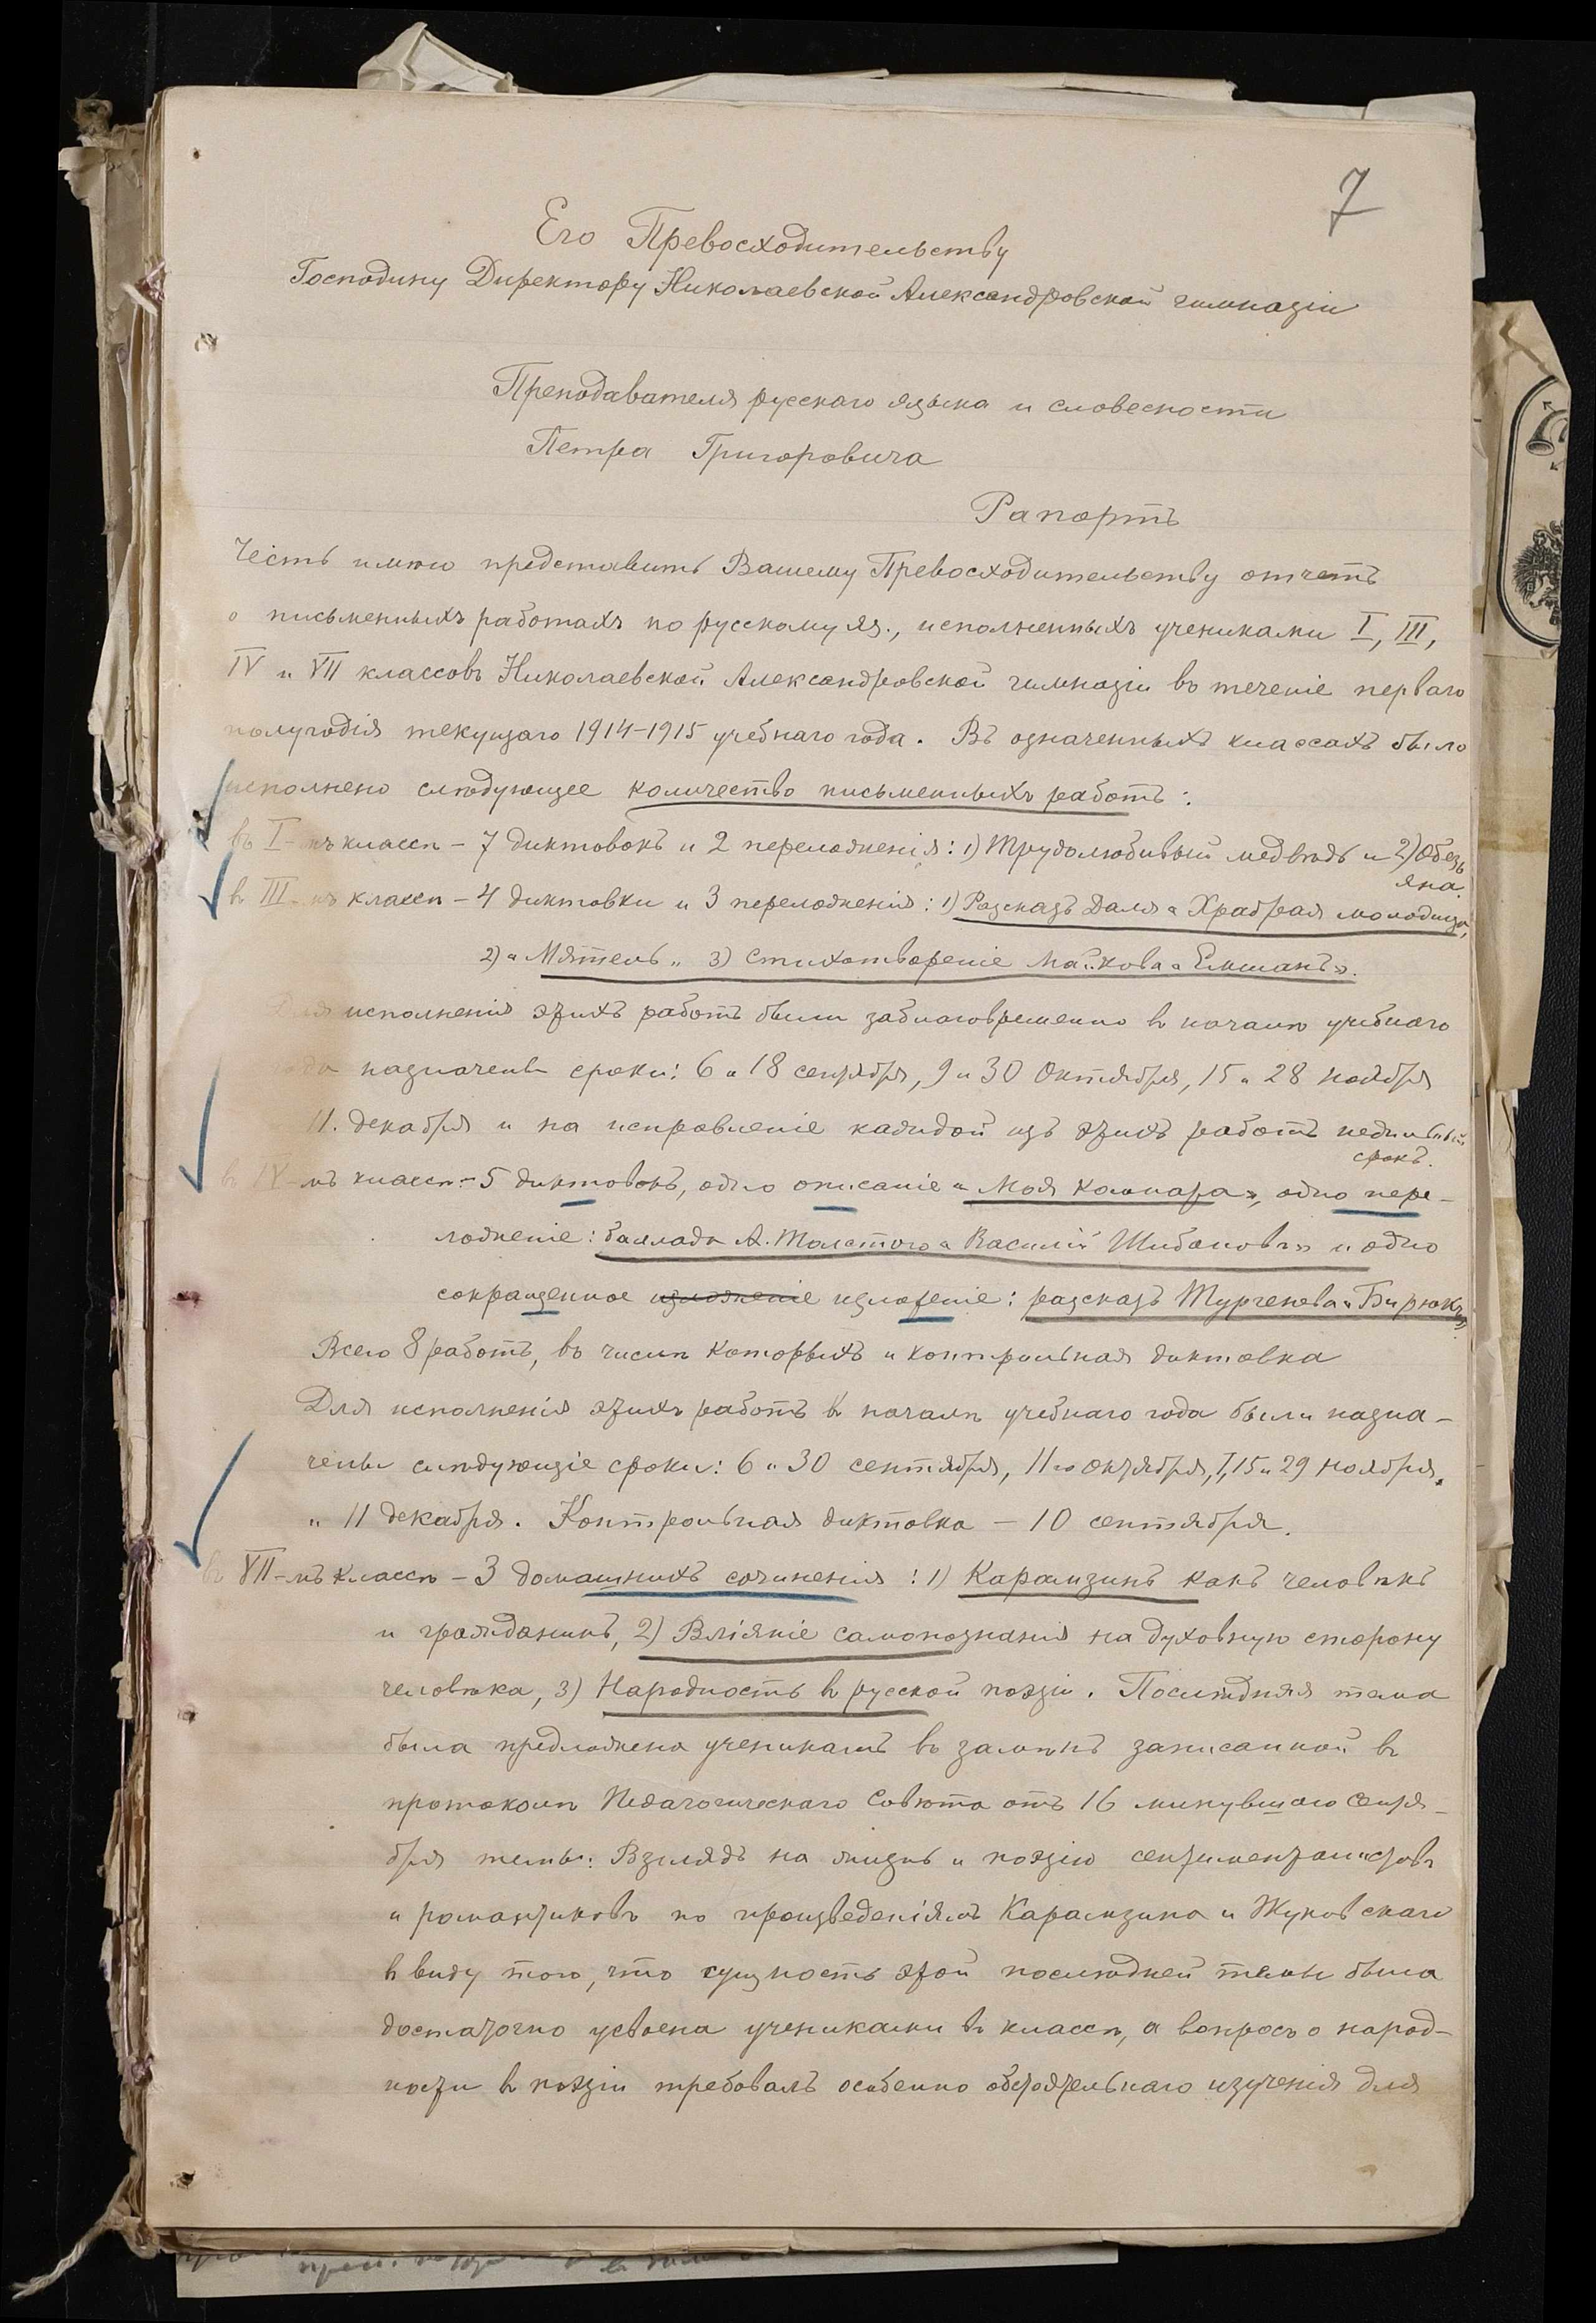 7
Его Превосходительству
Господину Директору Николаевской Александровской гимназіи
Преподавателя русскаго языка и словесности
Петра Григоровича
Рапортъ
Честь имѣю представить Вашему Превосходительству отчетъ
о письменныхъ работахъ по русскому яз., исполненныхъ учениками I, III,
IV и VII классовъ Николаевской Александровской гимназіи въ теченіе перваго
полугодія текущаго 1914-1915 учебнаго года. Въ означенныхъ классахъ было
исполнено слѣдующее количество письменныхъ работъ:
въ I-мъ классѣ - 7 диктовокъ и 2 переложенія: 1) Трудолюбивый медвѣдь и 2) Обезь
яна.
в III-мъ классѣ - 4 диктовки и 3 переложенія: 1) Разсказъ Даля "Храбрая молодица",
2) "Мятель" 3) Стихотвореніе Майкова "Емшанъ".
Для исполненія этихъ работъ были заблаговременно в началѣ учебнаго
года назначены сроки: 6 и 18 сентября, 9 и 30 Октября, 15 и 28 ноября
11. декабря и на исправленіе каждой изъ этихъ работъ недѣльный
срокъ.
в IV-мъ классѣ - 5 диктовокъ, одно описаніе "Моя комната", одно пере-
ложеніе: баллада А. Толстого "Василій Шибановъ" и одно
сокращенное изложеніе изложеніе: разсказъ Тургенева "Бирюкъ"
Всего 8 работъ, въ числѣ которыхъ и контрольная диктовка
Для исполненія этихъ работъ в началѣ учебнаго года были назна-
чены слѣдующіе сроки: 6 и 30 сентября, 11го октября, 1, 15 и 29 ноября,
и 11 декабря. Контрольная диктовка - 10 сентября.
в VII-мъ классѣ - 3 домашнихъ сочиненія: 1) Карамзинъ какъ человѣкъ
и гражданинъ, 2) Вліяніе самопознанія на духовную сторону
человѣка, 3) Народность в русской поэзіи. Послѣдняя тема
была предложена ученикамъ въ замѣнъ записанной в
протоколѣ Педагогическаго Совѣта отъ 16 минувшаго сентя-
бря темы: Взглядъ на жизнь и поэзію сентименталистовъ
и романтиковъ по произведеніямъ Карамзина и Жуковскаго
в виду того, что сущность этой послѣдней темы была
достаточно усвоена учениками в классѣ, а вопросъ о народ-
ности в поэзіи требовалъ особенно обстоятельнаго изученія для